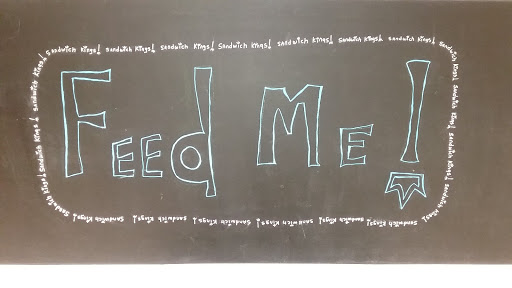 Sandwich Kings! Sandwich Kings! Sandwich Kings! Sandwich Kings! Sandwich Kings! Sandwich Kings! Sandwich Kings!
Sandwich Kings! Sandwich Kings! Sandwich Kings! Sandwich Kings!
Feed Me!
Sandwich Kings! Sandwich Kings! Sandwich Kings! Sandwich Kings! Sandwich Kings! Sandwich Kings!
Sandwich Kings! Sandwich Kings! Sandwich Kings!